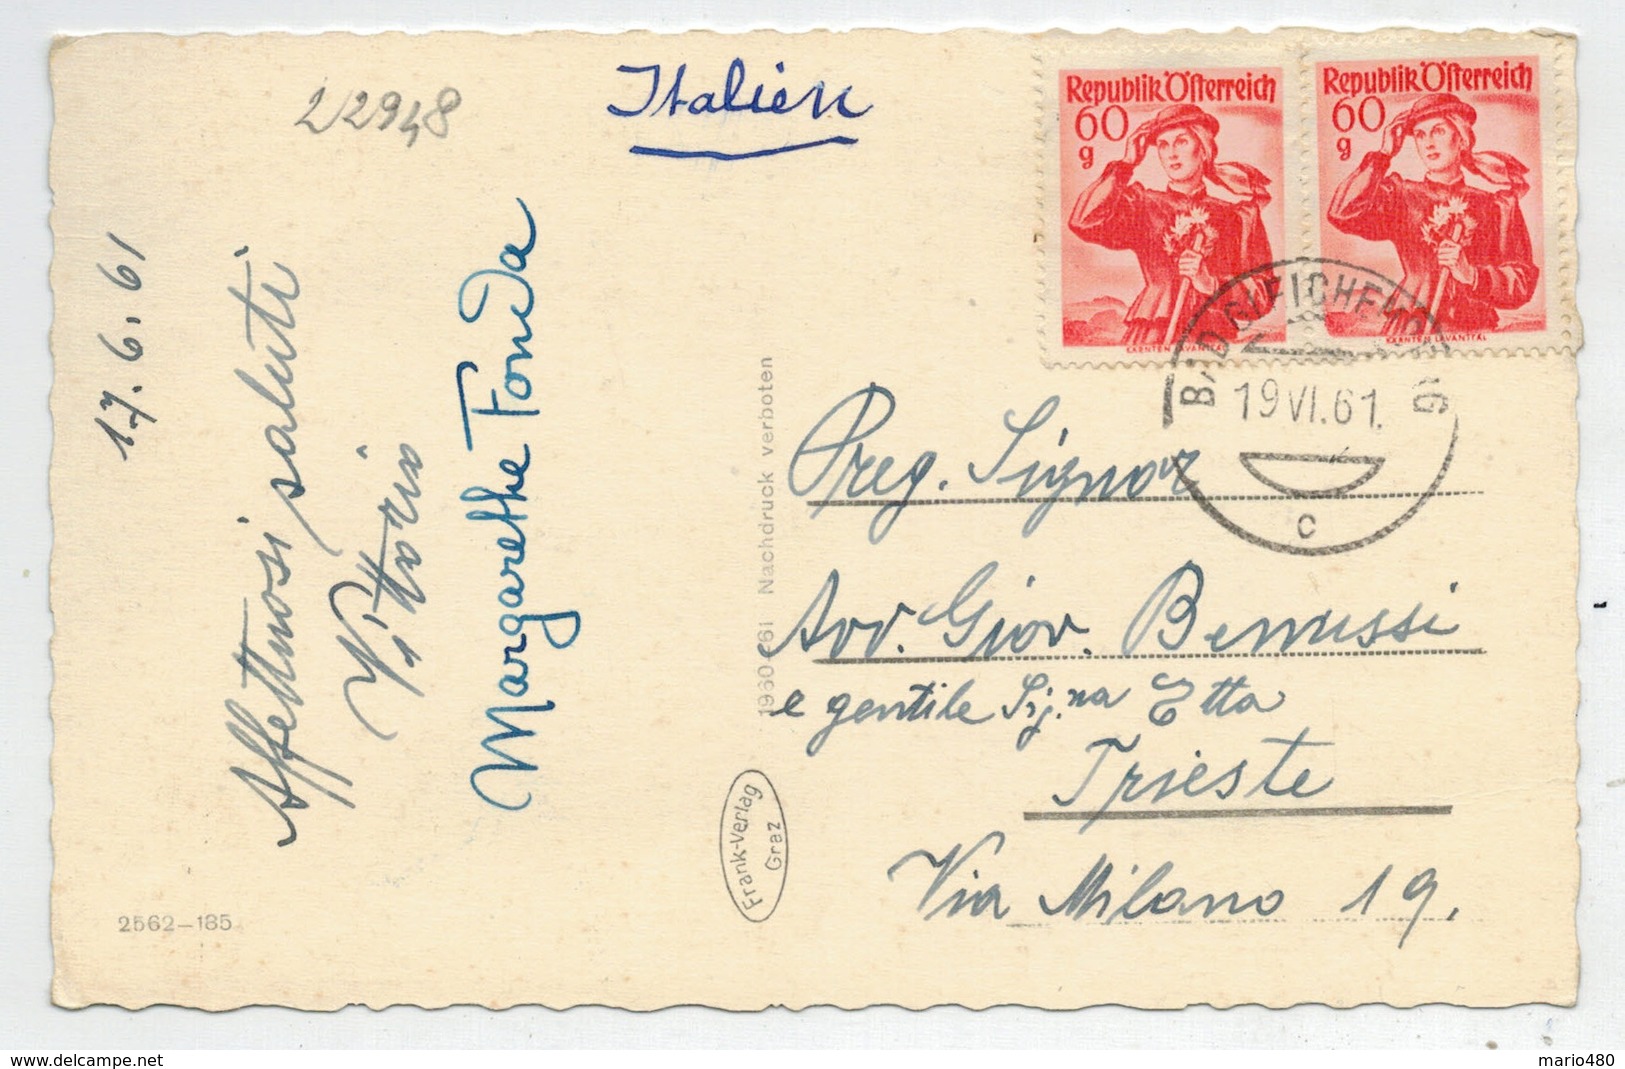 22948
Italien
Republik Österreich
60
g
KÄRNTEN LAVANTTAL
Republik Österreich
60
g
KÄRNTEN LAVANTTAL
BAD GLEICHENBERG
19.VI.61.
c
17.6.61
Affettuosi saluti
Vittorio
Margarethe Fonda
1960/61 Nachdruck verboten
Frank-Verlag
Graz
2562-185
Preg. Signor
Avv. Giov. Benussi
e gentile Sig.na Etta
Trieste
Via Milano 19.
mario480